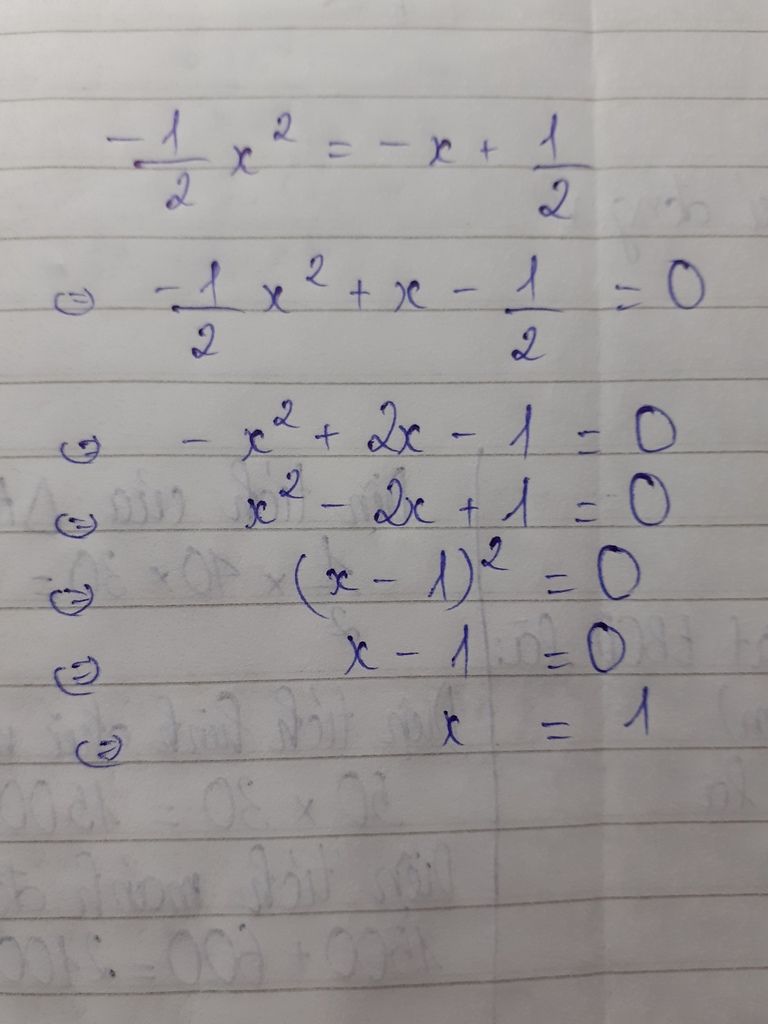 -1/2 x² = - x + 1/2
⇔ -1/2 x² + x - 1/2 = 0
⇔ - x² + 2x - 1 = 0
⇔ x² - 2x + 1 = 0
⇔ (x - 1)² = 0
⇔ x - 1 = 0
⇔ x = 1